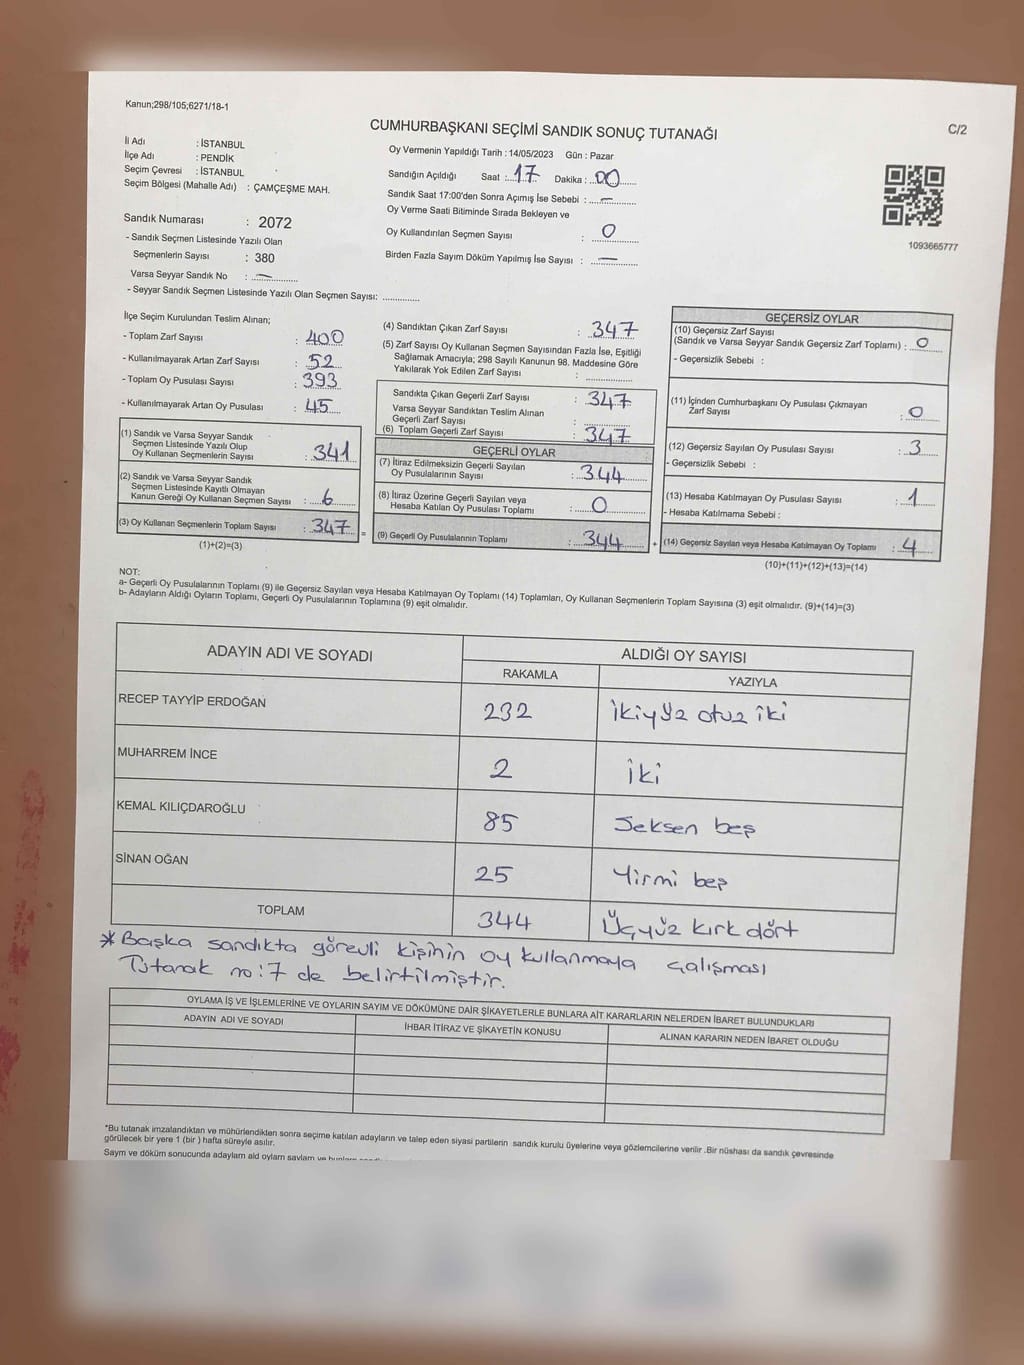 Kanun;298/105;6271/18-1
C/2
CUMHURBAŞKANI SEÇİMİ SANDIK SONUÇ TUTANAĞI
İl Adı : İSTANBUL
İlçe Adı : PENDİK
Seçim Çevresi : İSTANBUL
Seçim Bölgesi (Mahalle Adı) : ÇAMÇEŞME MAH.
Sandık Numarası : 2072
- Sandık Seçmen Listesinde Yazılı Olan
Seçmenlerin Sayısı : 380
Varsa Seyyar Sandık No : —
- Seyyar Sandık Seçmen Listesinde Yazılı Olan Seçmen Sayısı: ............
Oy Vermenin Yapıldığı Tarih : 14/05/2023 Gün : Pazar
Sandığın Açıldığı Saat :17 Dakika :00
Sandık Saat 17:00'den Sonra Açımış İse Sebebi : —
Oy Verme Saati Bitiminde Sırada Bekleyen ve
Oy Kullandırılan Seçmen Sayısı : 0
Birden Fazla Sayım Döküm Yapılmış İse Sayısı : —
1093665777
İlçe Seçim Kurulundan Teslim Alınan;
- Toplam Zarf Sayısı : 400
- Kullanılmayarak Artan Zarf Sayısı : 52
- Toplam Oy Pusulası Sayısı : 393
- Kullanılmayarak Artan Oy Pusulası : 45
(1) Sandık ve Varsa Seyyar Sandık
Seçmen Listesinde Yazılı Olup
Oy Kullanan Seçmenlerin Sayısı : 341
(2) Sandık ve Varsa Seyyar Sandık
Seçmen Listesinde Kayıtlı Olmayan
Kanun Gereği Oy Kullanan Seçmen Sayısı : 6
(3) Oy Kullanan Seçmenlerin Toplam Sayısı : 347
(1)+(2)=(3)
=
(4) Sandıktan Çıkan Zarf Sayısı : 347
(5) Zarf Sayısı Oy Kullanan Seçmen Sayısından Fazla İse, Eşitliği
Sağlamak Amacıyla; 298 Sayılı Kanunun 98. Maddesine Göre
Yakılarak Yok Edilen Zarf Sayısı : ............
Sandıkta Çıkan Geçerli Zarf Sayısı : 347
Varsa Seyyar Sandıktan Teslim Alınan
Geçerli Zarf Sayısı : ............
(6) Toplam Geçerli Zarf Sayısı : 347
GEÇERLİ OYLAR
(7) İtiraz Edilmeksizin Geçerli Sayılan
Oy Pusulalarının Sayısı : 344
(8) İtiraz Üzerine Geçerli Sayılan veya
Hesaba Katılan Oy Pusulası Toplamı : 0
(9) Geçerli Oy Pusulalarının Toplamı : 344
+
GEÇERSİZ OYLAR
(10) Geçersiz Zarf Sayısı
(Sandık ve Varsa Seyyar Sandık Geçersiz Zarf Toplamı) : 0
- Geçersizlik Sebebi :
(11) İçinden Cumhurbaşkanı Oy Pusulası Çıkmayan
Zarf Sayısı : 0
(12) Geçersiz Sayılan Oy Pusulası Sayısı : 3
- Geçersizlik Sebebi :
(13) Hesaba Katılmayan Oy Pusulası Sayısı : 1
- Hesaba Katılmama Sebebi :
(14) Geçersiz Sayılan veya Hesaba Katılmayan Oy Toplamı : 4
(10)+(11)+(12)+(13)=(14)
NOT:
a- Geçerli Oy Pusulalarının Toplamı (9) ile Geçersiz Sayılan veya Hesaba Katılmayan Oy Toplamı (14) Toplamları, Oy Kullanan Seçmenlerin Toplam Sayısına (3) eşit olmalıdır. (9)+(14)=(3)
b- Adayların Aldığı Oyların Toplamı, Geçerli Oy Pusulalarının Toplamına (9) eşit olmalıdır.
ADAYIN ADI VE SOYADI
ALDIĞI OY SAYISI
RAKAMLA YAZIYLA
RECEP TAYYİP ERDOĞAN 232 İkiyüz otuz iki
MUHARREM İNCE 2 İki
KEMAL KILIÇDAROĞLU 85 Seksen beş
SİNAN OĞAN 25 Yirmi beş
TOPLAM 344 Üçyüz kırk dört
* Başka sandıkta görevli kişinin oy kullanmaya çalışması
Tutanak no:7 de belirtilmiştir.
OYLAMA İŞ VE İŞLEMLERİNE VE OYLARIN SAYIM VE DÖKÜMÜNE DAİR ŞİKAYETLERLE BUNLARA AİT KARARLARIN NELERDEN İBARET BULUNDUKLARI
ADAYIN ADI VE SOYADI İHBAR İTİRAZ VE ŞİKAYETİN KONUSU ALINAN KARARIN NEDEN İBARET OLDUĞU
*Bu tutanak imzalandıktan ve mühürlendikten sonra seçime katılan adayların ve talep eden siyasi partilerin sandık kurulu üyelerine veya gözlemcilerine verilir .Bir nüshası da sandık çevresinde
görülecek bir yere 1 (bir ) hafta süreyle asılır.
Sayım ve döküm sonucunda